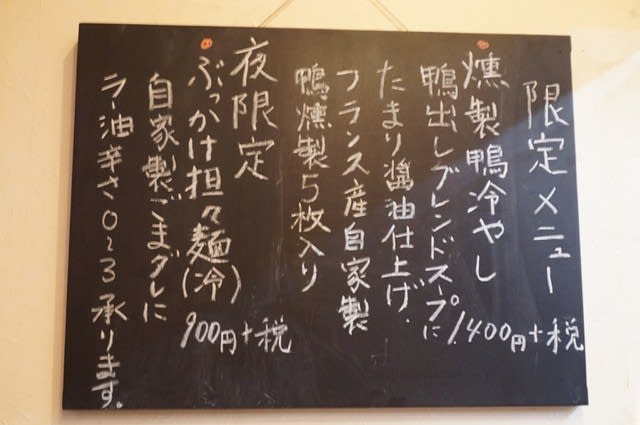 限定メニュー
燻製鴨冷やし
1.400円+税
鴨出しブレンドスープに
たまり醤油仕上げ.
フランス産自家製
鴨燻製5枚入り
夜限定
ぶっかけ担々麺(冷)
900円+税
自家製ごまダレに
ラー油辛さ0~3承ります。